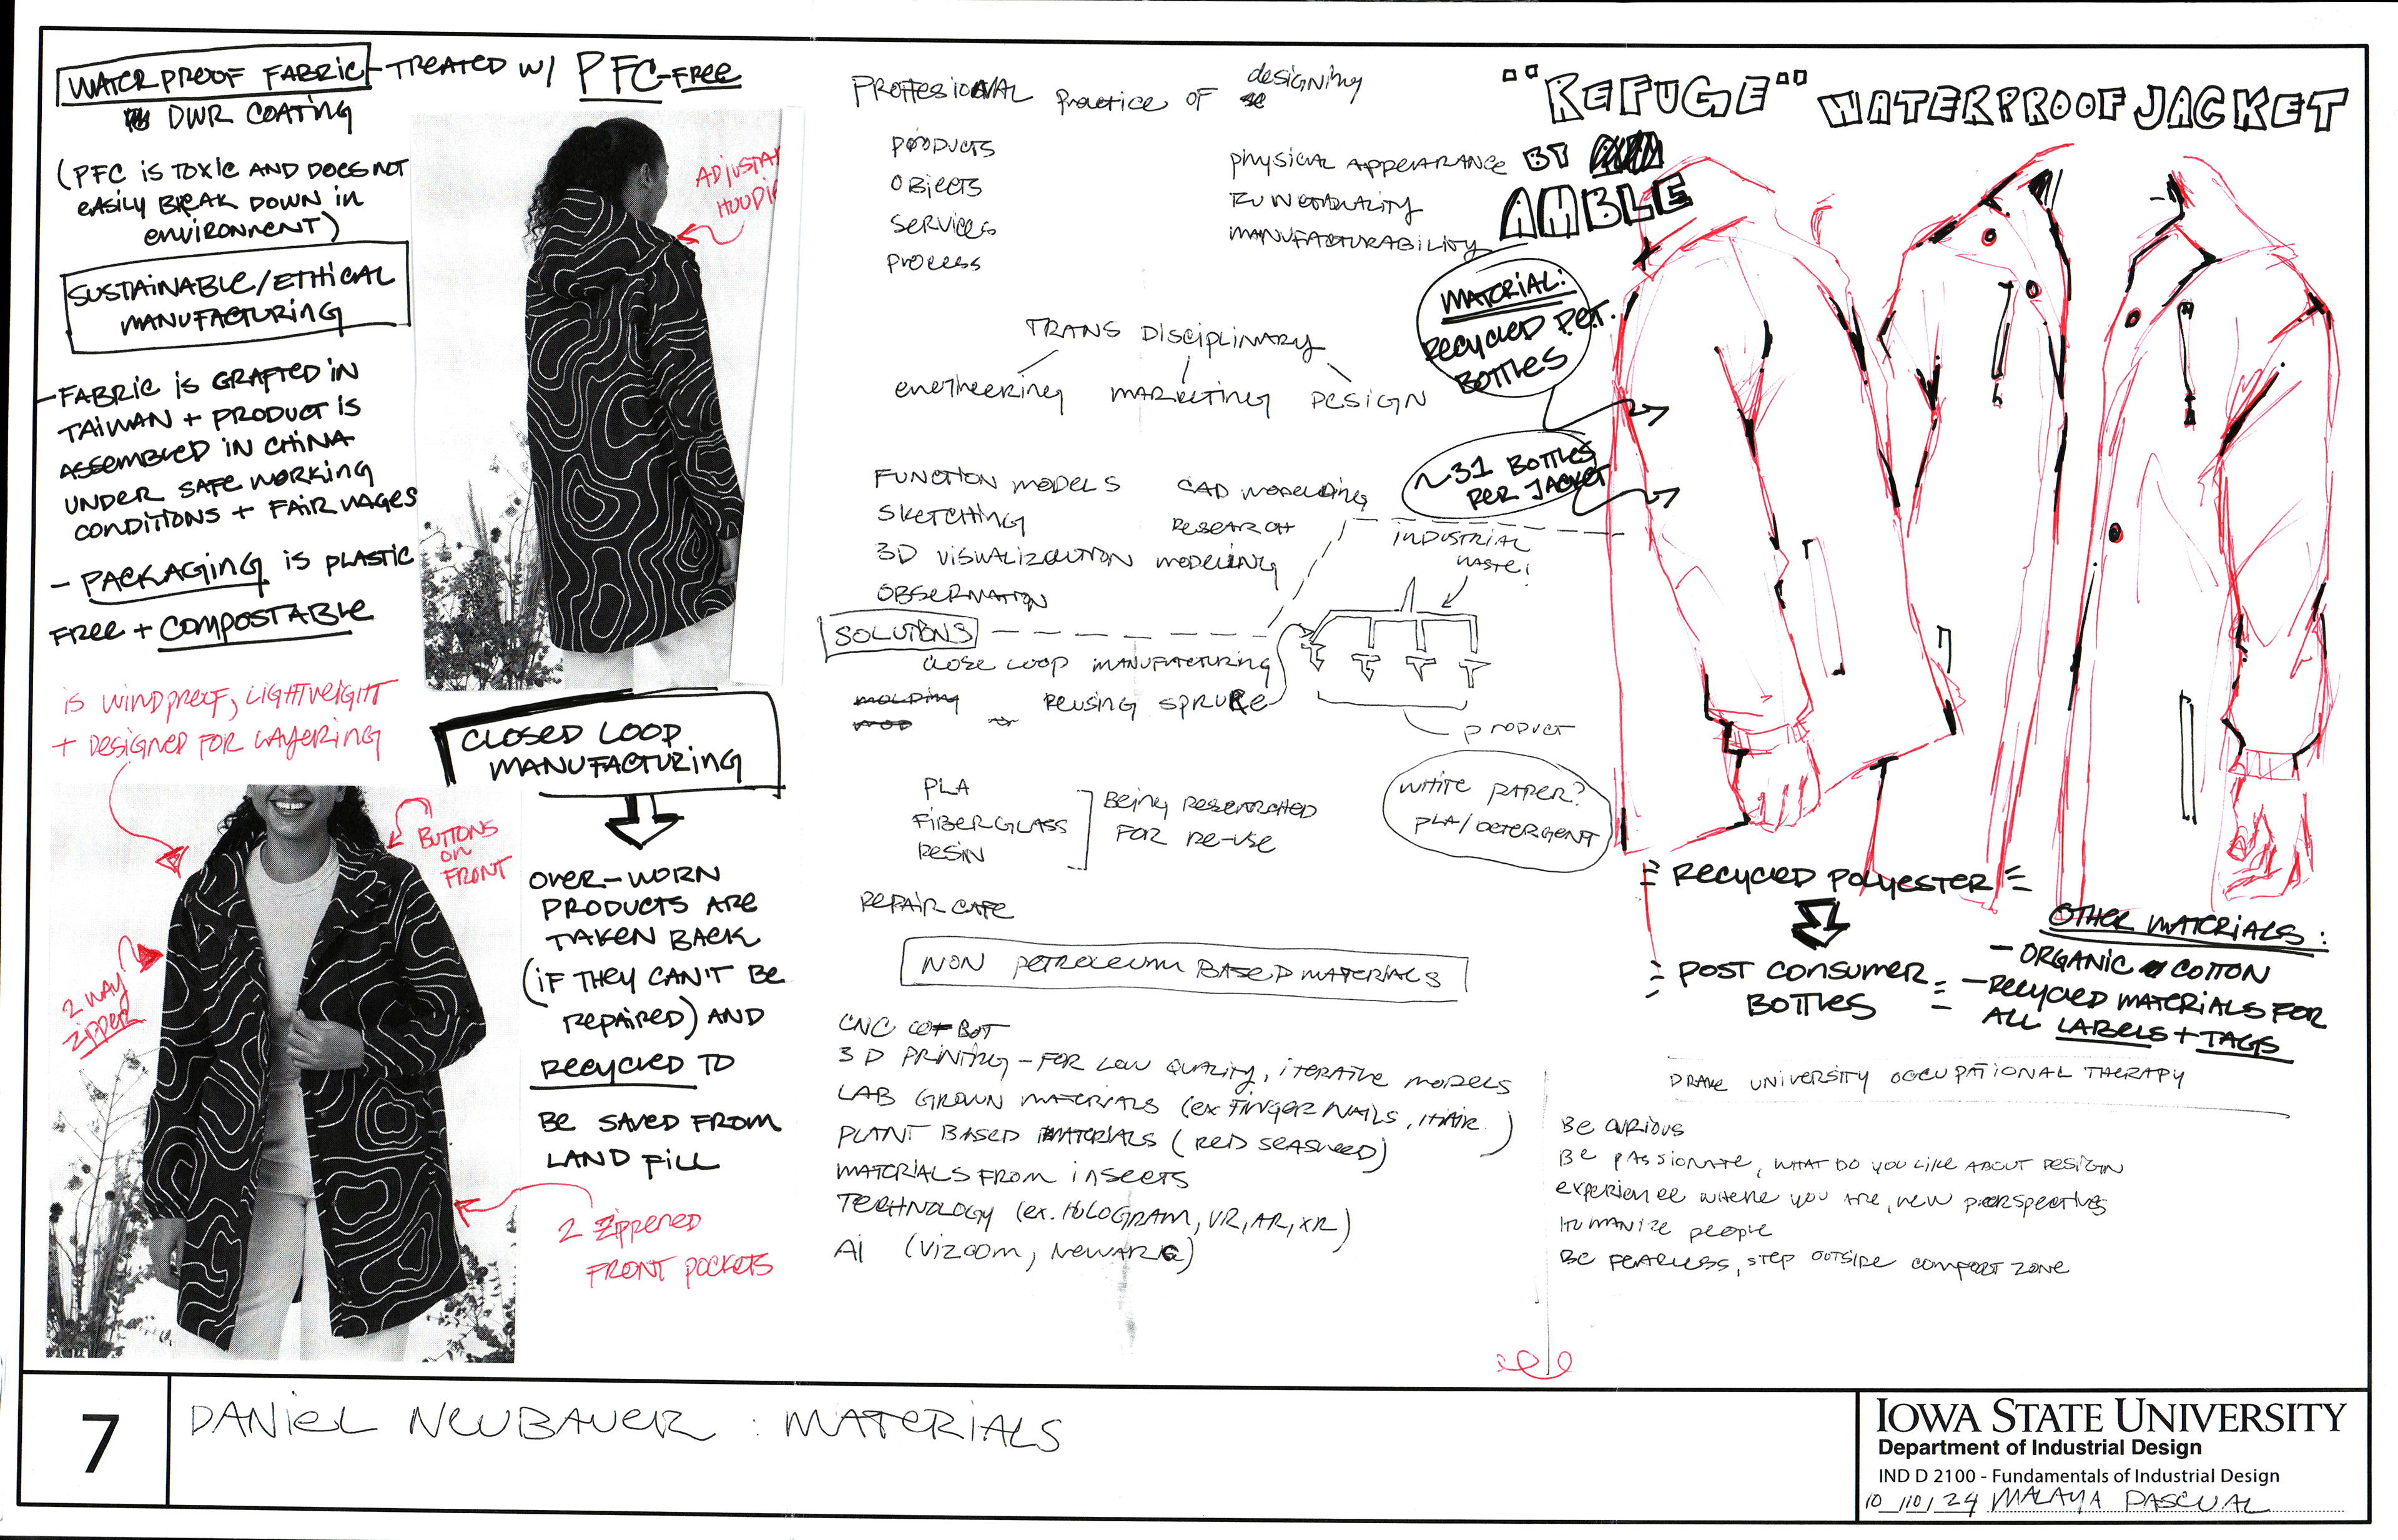 WATERPROOF FABRIC - TREATED W/ PFC-FREE
DWR COATING
(PFC IS TOXIC AND DOES NOT
EASILY BREAK DOWN IN
ENVIRONMENT)
SUSTAINABLE/ETHICAL
MANUFACTURING
- FABRIC IS GRAFTED IN
TAIWAN + PRODUCT IS
ASSEMBLED IN CHINA
UNDER SAFE WORKING
CONDITIONS + FAIR WAGES
- PACKAGING IS PLASTIC
FREE + COMPOSTABLE
IS WINDPROOF, LIGHTWEIGHT
+ DESIGNED FOR LAYERING
ADJUSTA
HOODI
BUTTONS
ON
FRONT
2 WAY
ZIPPER
2 ZIPPERED
FRONT POCKETS
CLOSED LOOP
MANUFACTURING
OVER-WORN
PRODUCTS ARE
TAKEN BACK
(IF THEY CAN'T BE
REPAIRED) AND
RECYCLED TO
BE SAVED FROM
LAND FILL
PROFFESIONAL PRACTICE OF designing
PRODUCTS
OBJECTS
SERVICES
PROCESS
PHYSICAL APPEARANCE
FUNCTIONALITY
MANUFACTURABILITY
TRANS DISCIPLINARY
ENGINEERING MARKETING DESIGN
FUNCTION MODELS
SKETCHING
3D VISUALIZATION MODELING
OBSERVATION
CAD MODELING
RESEARCH
SOLUTIONS
CLOSE LOOP MANUFACTURING
MOLDING
REUSING SPRUKE
INDUSTRIAL
WASTE!
PRODUCT
PLA
FIBERGLASS
RESIN
BEING RESEARCHED
FOR RE-USE
WHITE PAPER?
PLA/DETERGENT
REPAIR CAFE
NON PETROLEUM BASED MATERIALS
CNC COT BOT
3D PRINTING - FOR LOW QUALITY, ITERATIVE MODELS
LAB GROWN MATERIALS (EX FINGER NAILS, HAIR)
PLANT BASED MATERIALS (RED SEASWEED)
MATERIALS FROM INSECTS
TECHNOLOGY (EX. HOLOGRAM, VR, AR, XR)
AI (VIZCOM, NEWARC)
"REFUGE" WATERPROOF JACKET
BY
AMBLE
MATERIAL:
RECYCLED P.E.T.
BOTTLES
~31 BOTTLES
PER JACKET
RECYCLED POLYESTER
POST CONSUMER
BOTTLES
OTHER MATERIALS:
- ORGANIC COTTON
- RECYCLED MATERIALS FOR
ALL LABELS + TAGS
DRAKE UNIVERSITY OCCUPATIONAL THERAPY
BE CURIOUS
BE PASSIONATE, WHAT DO YOU LIKE ABOUT DESIGN
EXPERIENCE WHERE YOU ARE, NEW PERSPECTIVES
HUMANIZE PEOPLE
BE FEARLESS, STEP OUTSIDE COMFORT ZONE
7
DANIEL NEUBAUER : MATERIALS
IOWA STATE UNIVERSITY
Department of Industrial Design
IND D 2100 - Fundamentals of Industrial Design
10/10/24 MALAYA PASCUAL